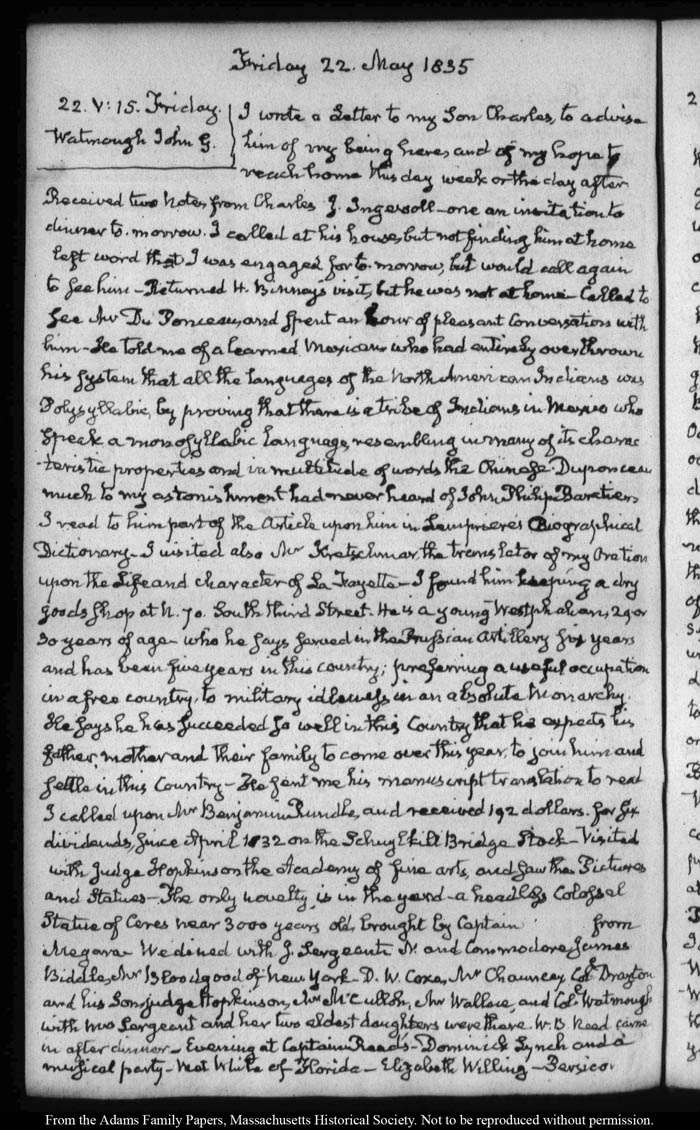 Friday 22. May 1835
22. V: 15. Friday.
Watmough John G.
I wrote a Letter to my Son Charles, to advise
him of my being here, and of my hope to
reach home this day week or the day after
Received two Notes from Charles J. Ingersoll—one an invitation to
dinner to-morrow. I called at his house, but not finding him at home
left word that I was engaged for to-morrow, but would call again
to see him—Returned H. Binney's visit, but he was not at home—Called to
see Mr Du Ponceau, and spent an hour of pleasant Conversation with
him—He told me of a learned Mexican who had entirely overthrown
his system that all the languages of the North American Indians was
Polysyllabic, by proving that there is a tribe of Indians in Mexico who
speak a monosyllabic language, resembling in many of its charac
-teristic properties and in multitude of words the Chinese. Duponceau
much to my astonishment had never heard of John Philip Baratier
I read to him part of the Article upon him in Lempriere's Biographical
Dictionary—I visited also Mr Kretschmar, the translator of my Oration
upon the Life and character of La Fayette—I found him keeping a dry
goods shop at N. 70. South third Street. He is a young Westphalian, 29 or
30 years of age—who he says served in the Prussian Artillery six years
and has been five years in this country; preferring a useful occupation
in a free country, to military idleness in an absolute Monarchy.
He says he has succeeded so well in this Country that he expects his
father, mother and their family to come over this year, to join him and
settle in this Country—He sent me his manuscript translation to read
I called upon Mr Benjamin Rundle, and received 192 dollars. for six
dividends, since April 1832 on the Schuylkill Bridge Stock—Visited
with Judge Hopkinson the Academy of fine arts, and saw the Pictures
and Statues—The only novelty is in the yard—a headless Colossal
Statue of Ceres near 3000 years old, brought by Captain from
Megara—We dined with J. Sergeant. N. and Commodore James
Biddle, Mr Bloodgood of New York—D. W. Coxe, Mr Chauncey, Col. Drayton
and his Son, judge Hopkinson, Mr McCulloh, Mr Wallace, and Col. Watmough
with Mrs Sergeant and her two eldest daughters were there. W. B. Reed came
in after dinner—Evening at Captain Read's—Dominick Lynch and a
musical party— White of Florida—Elizabeth Willing—Persico.
From the Adams Family Papers, Massachusetts Historical Society. Not to be reproduced without permission.